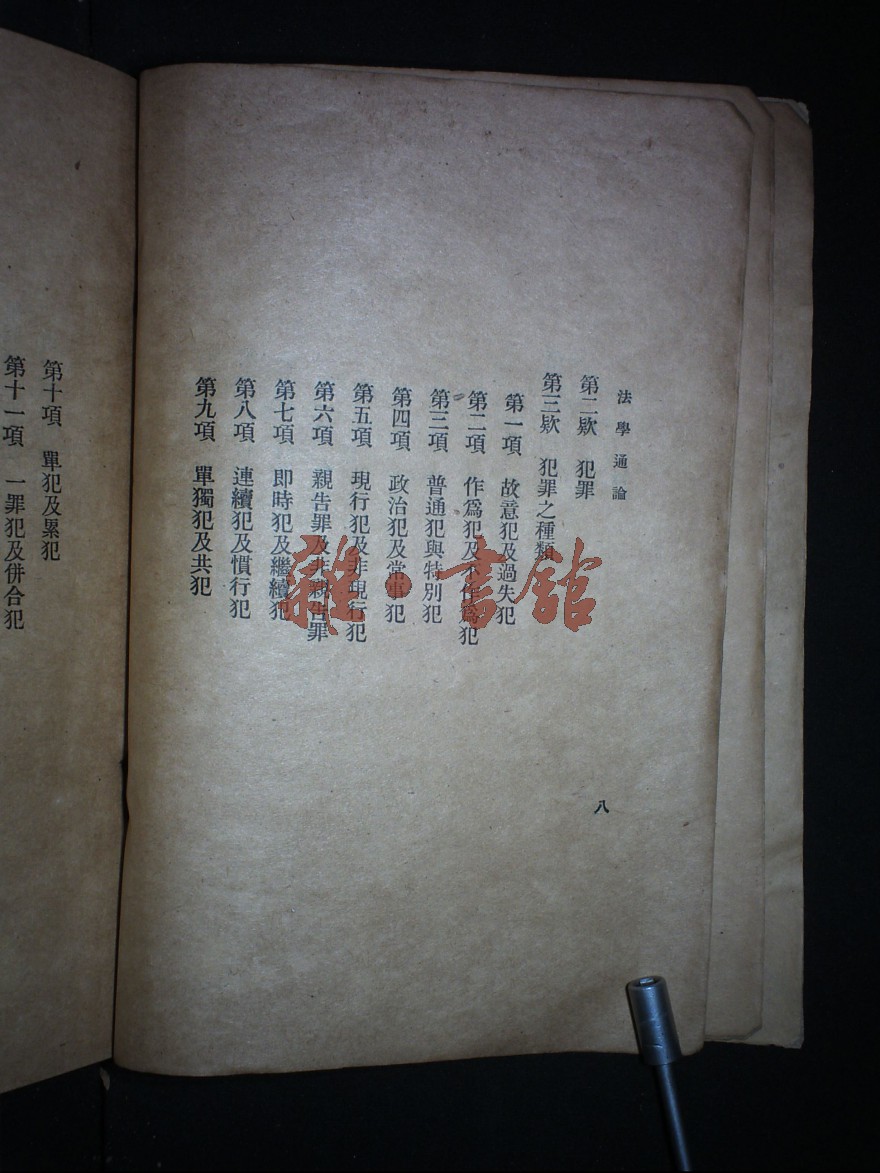 法學通論
第二欵 犯罪
第三欵 犯罪之種類
第一項 故意犯及過失犯
第二項 作爲犯及不作爲犯
第三項 普通犯與特別犯
第四項 政治犯及常事犯
第五項 現行犯及非現行犯
第六項 親告罪及非親告罪
第七項 即時犯及繼續犯
第八項 連續犯及慣行犯
第九項 單獨犯及共犯
八
第十項 單犯及累犯
第十一項 一罪犯及併合犯
雜·書館